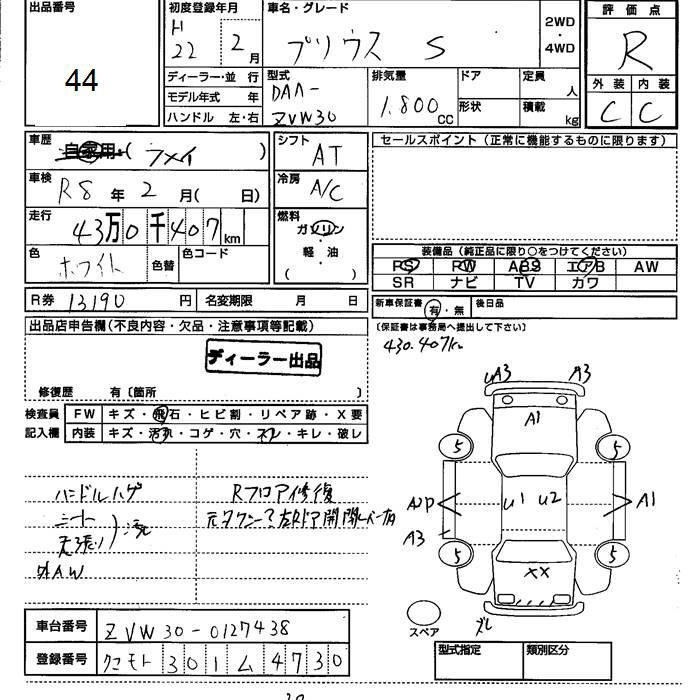 出品番号
44
初度登録年月
H
22 2月
ディーラー・並 行
モデル年式 年
ハンドル 左・右
車名・グレード
プリウス S
2WD
・
4WD
型式
DAA-
ZVW30
排気量
1.800 CC
ドア
形状
定員 人
積載 kg
評価点
R
外装 内装
C C
車歴
自家用・( )
車検
R8年2月( 日)
走行
43万0千407km
色
ホワイト
色替
色コード
シフト
AT
冷房
A/C
燃料
ガソリン
・
軽・油
( )
セールスポイント (正常に機能するものに限ります)
装備品 (純正品に限り○をつけてください)
PS PW ABS エアB AW
SR ナビ TV カワ
R券 13190 円 名変期限 月 日
新車保証書 有・無 後日品
(保証書は事務局へ提出して下さい)
430.407km
出品店申告欄(不良内容・欠品・注意事項等記載)
ディーラー出品
修復歴 有〔箇所 〕
検査員 FW キズ・飛石・ヒビ割・リペア跡・X要
記入欄 内装 キズ・汚れ・コゲ・穴・スレ・キレ・破レ
ハンドルハゲ
シート
天張り)汚
外AW
Rフロア修復
元タクシー?左Rドア開閉レバー有
uA3 A3
A1
5 5
U1 U2
A1
A3
5 5
XX
ズレ
スペア
車台番号 ZVW30-0127438
登録番号 クマモト 301 ム 4730
型式指定 類別区分